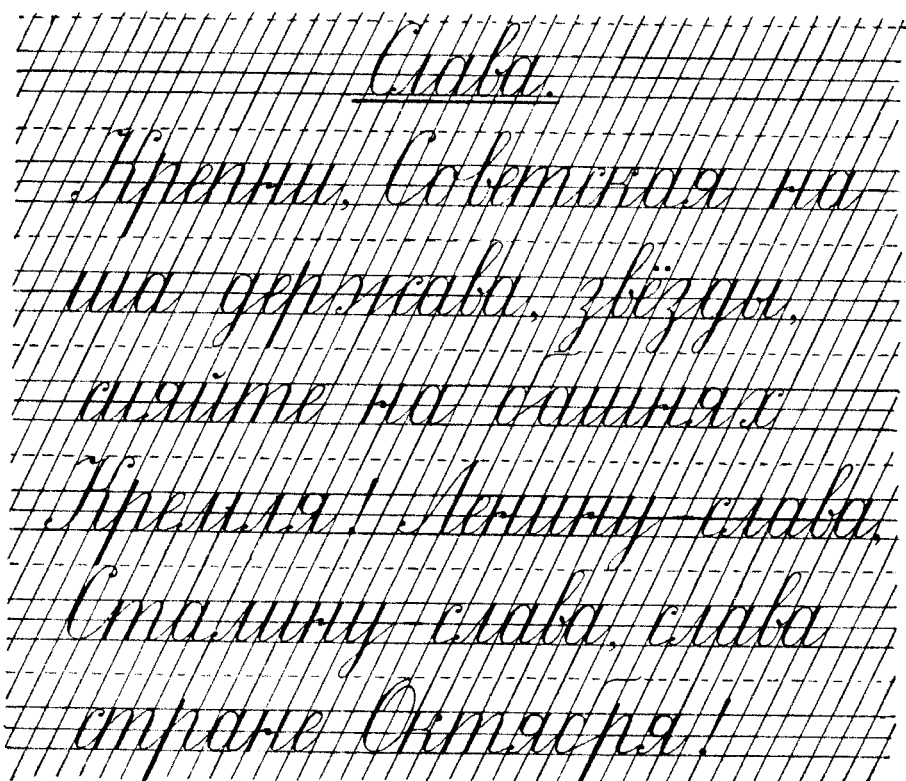 Слава.
Крепни, Советская на-
ша держава, звёзды,
сияйте на башнях
Кремля! Ленину-слава,
Сталину-слава, слава
стране Октября!